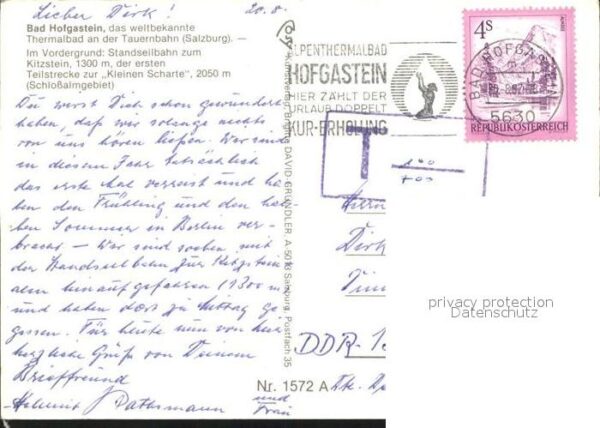 Lieber Dirk! 20.8.
Bad Hofgastein, das weltbekannte
Thermalbad an der Tauernbahn (Salzburg). —
Im Vordergrund: Standseilbahn zum
Kitzstein, 1300 m, der ersten
Teilstrecke zur „Kleinen Scharte“, 2050 m
(Schloßalmgebiet)
Du wirst Dich schon gewundert
haben, daß wir solange nichts
von uns hören ließen. Wir sind
in diesem Jahr tatsächlich
das erste Mal verreist und ha-
ben den Frühling und den hal-
ben Sommer in Berlin ver-
bracht – Wir sind soeben mit
der Standseilbahn zur Kitzstein
alm hinauf gefahren (1300 m)
und haben dort zu Mittag ge
gessen. Für heute nun von hier
herzliche Grüße von Deinem
Brieffreund
Helmut
und
Frau
Kunstverlag Brigitte DAVID-GRÜNDLER, A 5013 Salzburg, Postfach 35
ALPENTHERMALBAD
HOFGASTEIN
HIER ZÄHLT DER
URLAUB DOPPELT
KUR-ERHOLUNG
BAD HOFGAS
5630
4S
REPUBLIK ÖSTERREICH
T
Herrn
Dirk
DDR-1
Nr. 1572 A
privacy protection
Datenschutz